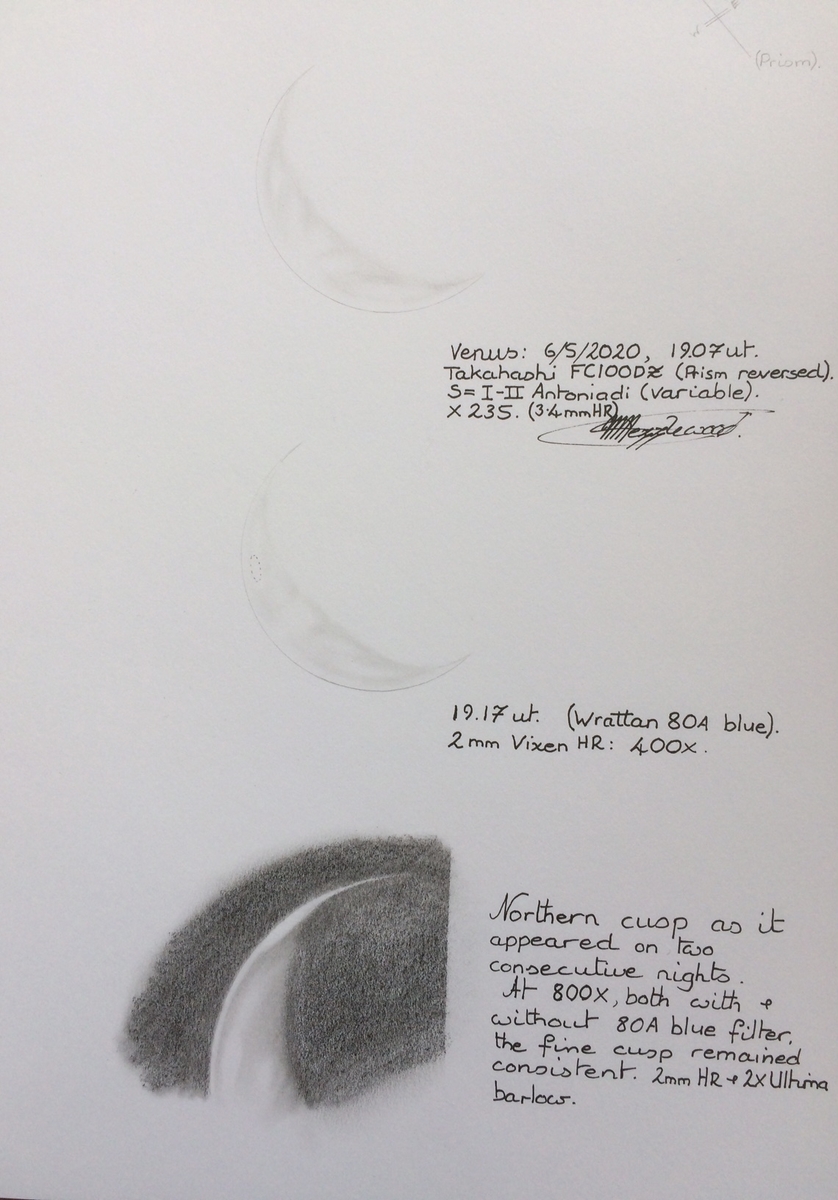 W
(Prism).
Venus: 6/5/2020, 19.07ut.
Takahashi FC100DZ (Prism reversed).
S= I-II Antoniadi (variable).
X 235. (3.4mmHR)
19.17 ut. (Wrattan 80A blue).
2mm Vixen HR: 400x.
Northern cusp as it
appeared on two
consecutive nights.
At 800X, both with +
without 80A blue filter,
the fine cusp remained
consistent. 2mm HR + 2X Ultima
barlow.